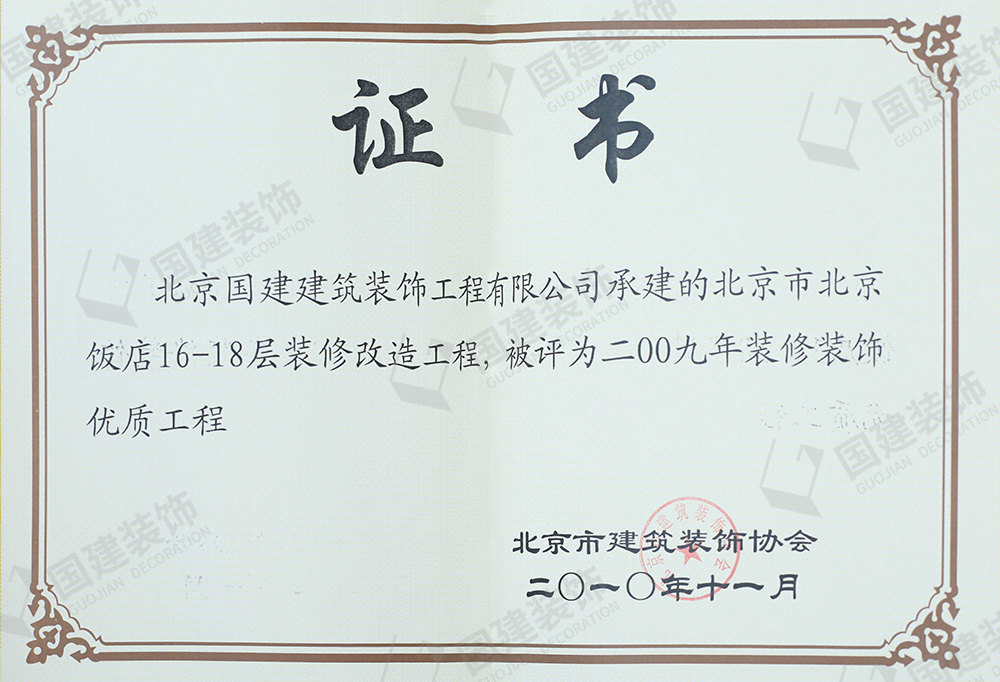 证书
北京国建建筑装饰工程有限公司承建的北京市北京
饭店16-18层装修改造工程，被评为二00九年装修装饰
优质工程
北京市建筑装饰协会
二〇一〇年十一月
国建装饰
GUOJIAN DECORATION